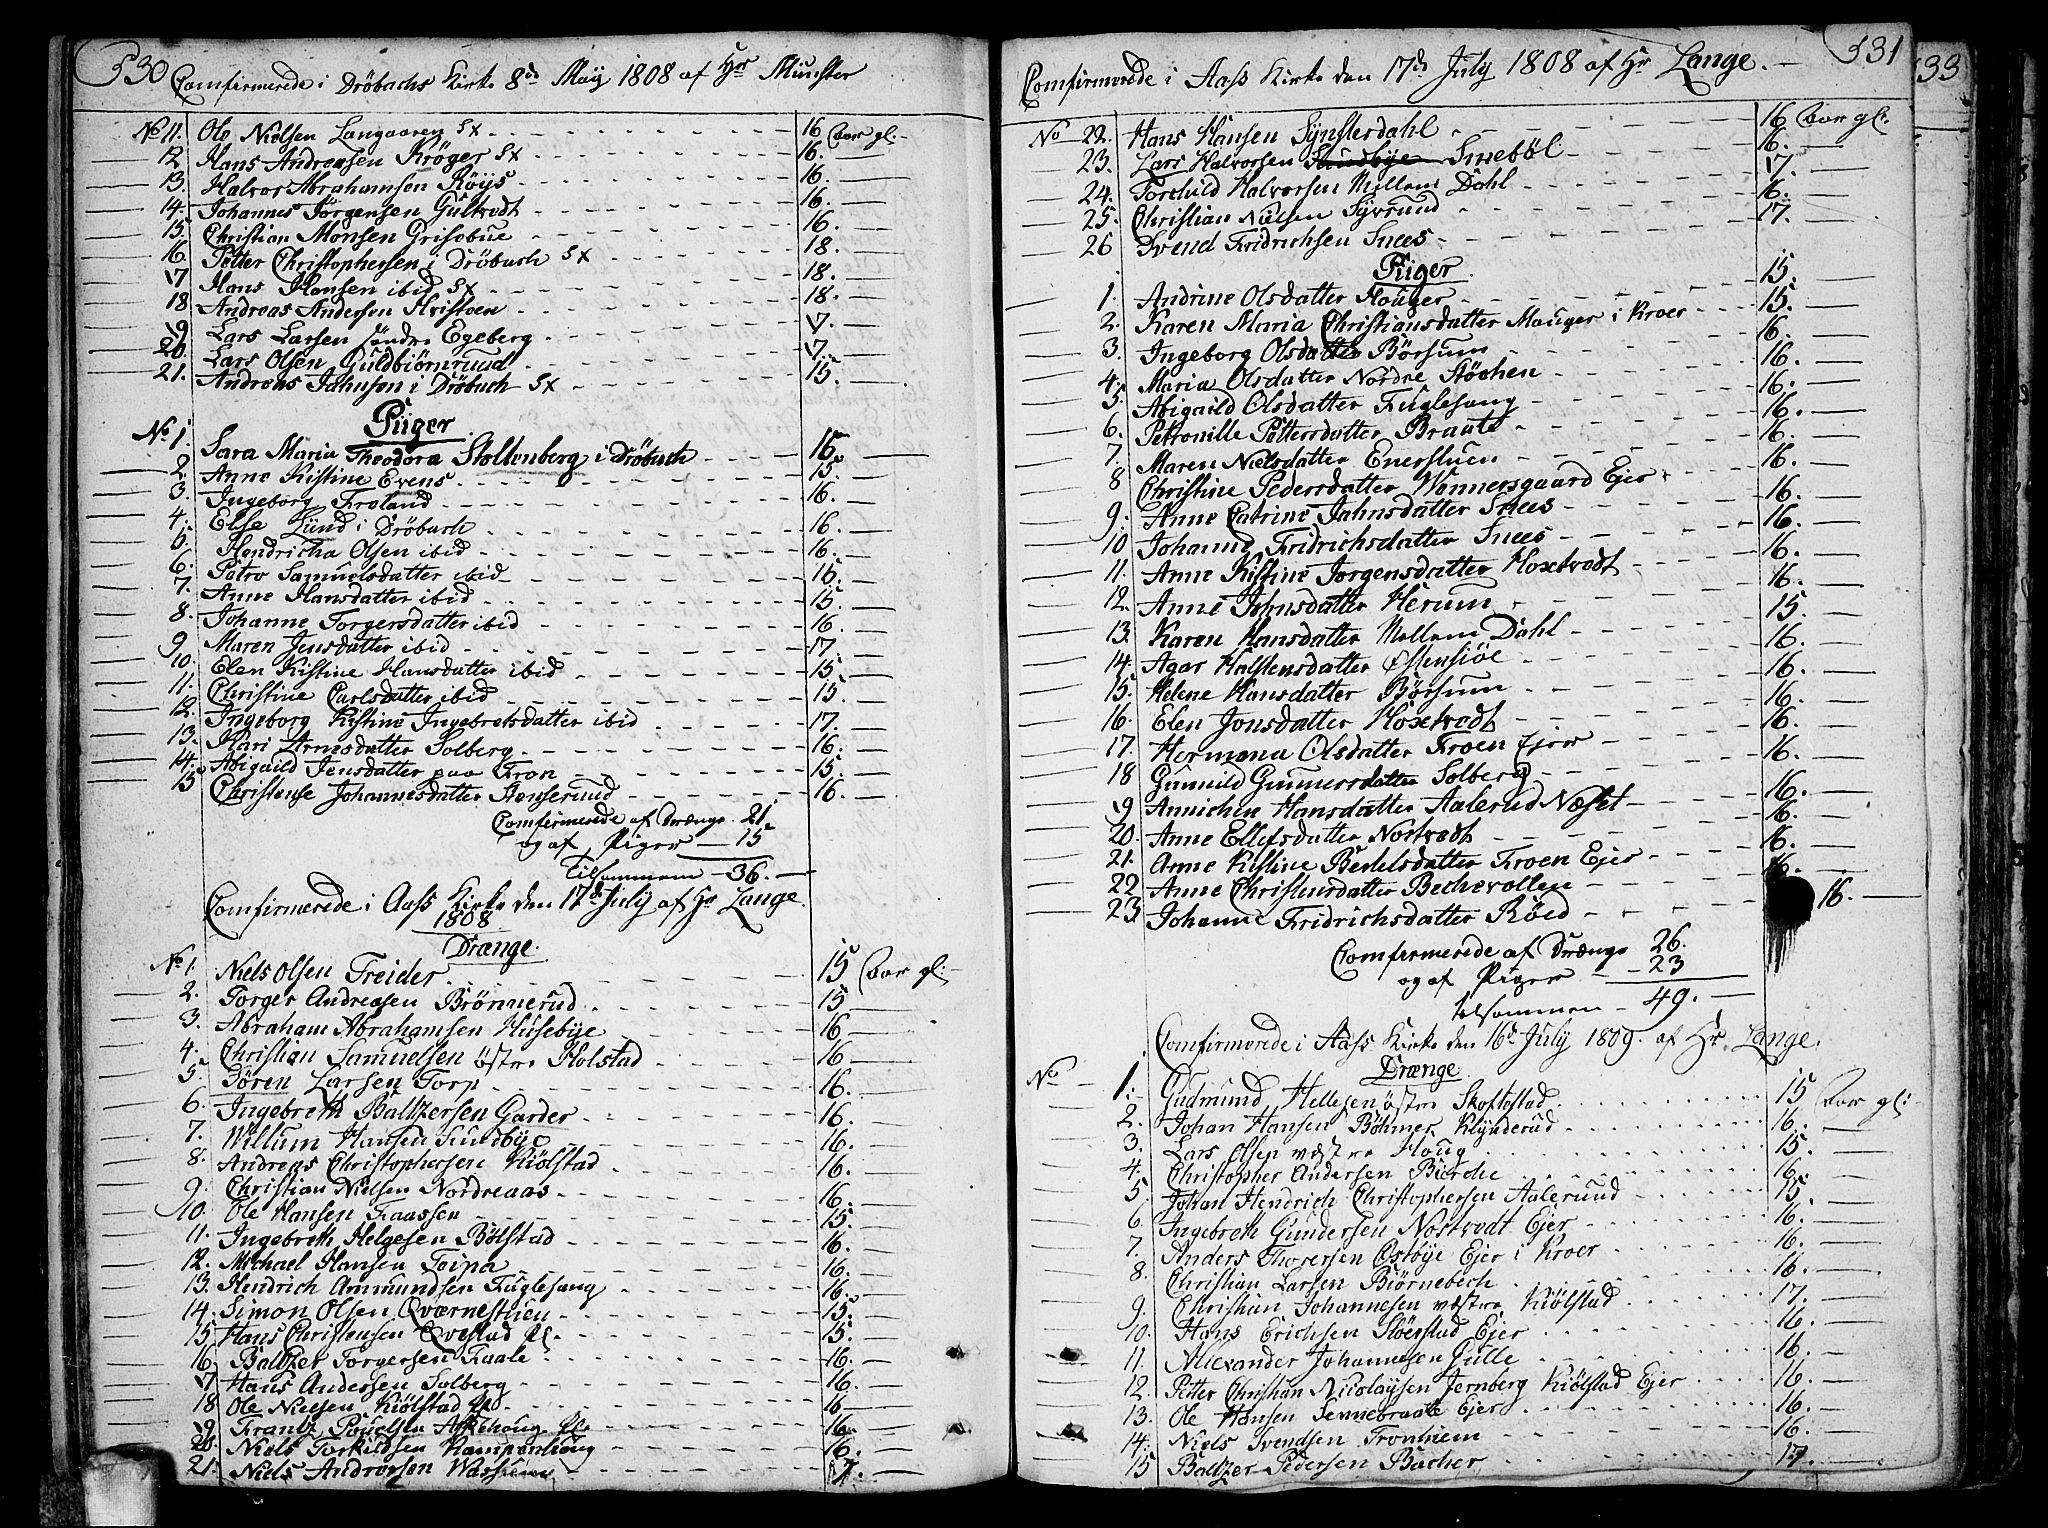 330
Comfirmerede i Dröbachs Kirke 8de Maÿ 1808 af Hr Münster
No 11. Ole Nielsen Langaaren Sx 16 aar gl:
12 Hans Andreasen Kröger Sx 16.
13. Halvor Abrahamsen Röÿs 16.
14. Johannes Jörgensen Gultvedt 16.
15 Christian Monsen Grisebue 16.
16. Petter Christophersen i Dröbach Sx 18.
17 Hans Hansen ibid Sx 18.
18 Andreas Andersen 18.
19. Lars Larsen söndre Egeberg 17.
20. Lars Olsen Guldbiörnrud 17.
21. Andreas Jahnsen i Dröbach Sx 15.
Piiger
No 1. Sara Maria Theodora Stoltenberg i Dröbach 15
2. Anne Kistine Evens 15.
3 Ingeborg Froland 16.
4. Else Lund i Dröbach 16.
5. Hendricha Olsen ibid 16.
6. Petro Samuelsdatter ibid 15.
7. Anne Hansdatter ibid 15.
8. Johanne Torgersdatter ibid 16.
9. Maren Jensdatter ibid 17.
10. Elen Kistine Hansdatter ibid 15.
11. Christine Carlsdatter ibid 15.
12. Ingeborg Kistine Ingebretsdatter ibid 17.
13. Kari Arnesdatter Solberg 16.
14. Abigaild Jensdatter paa Fron 15.
15 Christense Johannesdatter Stenserud 16.
Comfirmerede af Drænge 21.
og af Piger 15
Tilsammen 36.
Comfirmerede i Aass Kirke den 17de July af Hr Lange
1808
Drænge
No 1. Niels Olsen Treider 15 aar gl:
2. Torger Andreasen Brönnerud 15.
3. Abraham Abrahamsen Husebye 16
4. Christian Samuelsen östre Holstad 16
5. Sören Larsen Torp 16.
6. Ingebreth Baltzersen Garder 16.
7. Willum Hansen Sundbye 16.
8. Andreas Christophersen Kiölstad 16.
9. Christian Nielsen Nordreaas 16.
10. Ole Hansen Faassen 15.
11. Ingebreth Helgesen Bölstad 16.
12. Michael Hansen Toipa 16.
13. Hendrich Ammundsen Fuglesang 16.
14. Simon Olsen Qværnestuen 15.
15 Hans Christensen Qvestad 15.
16 Baltzer Torgersen Faale 16.
17 Hans Andersen Solberg 16.
18 Ole Nielsen Kiölstad 16
19 Frantz Povelsen Askehoug 16.
20. Niels Torkildsen Kamperhoug 16.
21. Niels Andersen 17.
331
Comfirmerede i Aass Kirke den 17de July 1808 af Hr Lange.
No 22. Hans Hansen Synsterdahl 16 aar gl:
23. Lars Halvorsen Sundbye Smeböl 16.
24. Torchild Halvorsen Mellem Dahl 17.
25. Christian Nielsen Syvrund 16.
26 Svend Fridrichsen Snees 17.
Piiger
1. Andrine Olsdatter Houger 15.
2. Karen Maria Christiansdatter Mauger i Kroer 15.
3. Ingeborg Olsdatter Börsum 16.
4. Maria Olsdatter Nordre Stöchen 16.
5. Abigaild Olsdatter Fuglesang 16.
6. Petronille Pettersdatter Braate 16.
7. Maren Nielsdatter Enerstuen 16.
8 Christine Pedersdatter Wonnersgaard Ejer 16.
9. Anne Catrine Jahnsdatter Snees 16.
10 Johanne Fridrichsdatter Snees 16.
11. Anne Kistine Jorgensdatter Hoxtvedt 16.
12. Anne Johnsdatter Herum 16.
13. Karen Hansdatter Mellem Dahl 15.
14. Agar Halstensdatter Østensiöe 16.
15. Helene Hansdatter Börsum 16.
16. Elen Jonsdatter Hoxtvedt 16.
17. Hermana Olsdatter Froen Ejer 16.
18 Gunnild Gunnersdatter Solberg 16.
19 Annichen Hansdatter Aalerud Næset 16.
20. Anne Ellefsdatter Nortvedt 16.
21. Anne Kistine Bertelsdatter Froen Ejer 16.
22 Anne Christensdatter Bechevollen 16.
23 Johanne Fridrichsdatter Röed 16.
Comfirmerede af Drænge 26.
og af Piger 23
tilsammen 49.
Comfirmerede i Aass Kirke den 16de July 1809. af Hr. Lange.
Drænge
No 1. Gudmund Hellesen östre Skoftestad 15 aar gl:
2. Johan Hansen Böhmer Klynderud 16.
3. Lars Olsen væstre Houg 15.
4. Christopher Andersen Bierche 16.
5. Johan Hendrich Christophersen Aalerund 15.
6. Ingebreth Gundersen Nostvedt Ejer 16.
7. Anders Thoresen Ostbye Ejer i Kroer 16.
8. Christian Larsen Biörnebech 16.
9. Christian Johannesen væstre Kiölstad 17.
10. Hans Erichsen Stöerstad Ejer 16.
11. Allexander Johannesen Julle 16.
12. Petter Christian Nicolaysen Jernberg Kiölstad Ejer 16.
13. Ole Hansen Sennebraate Ejer 16.
14. Niels Svendsen Tromnem 16.
15 Baltzer Pedersen Bacher 17.
33